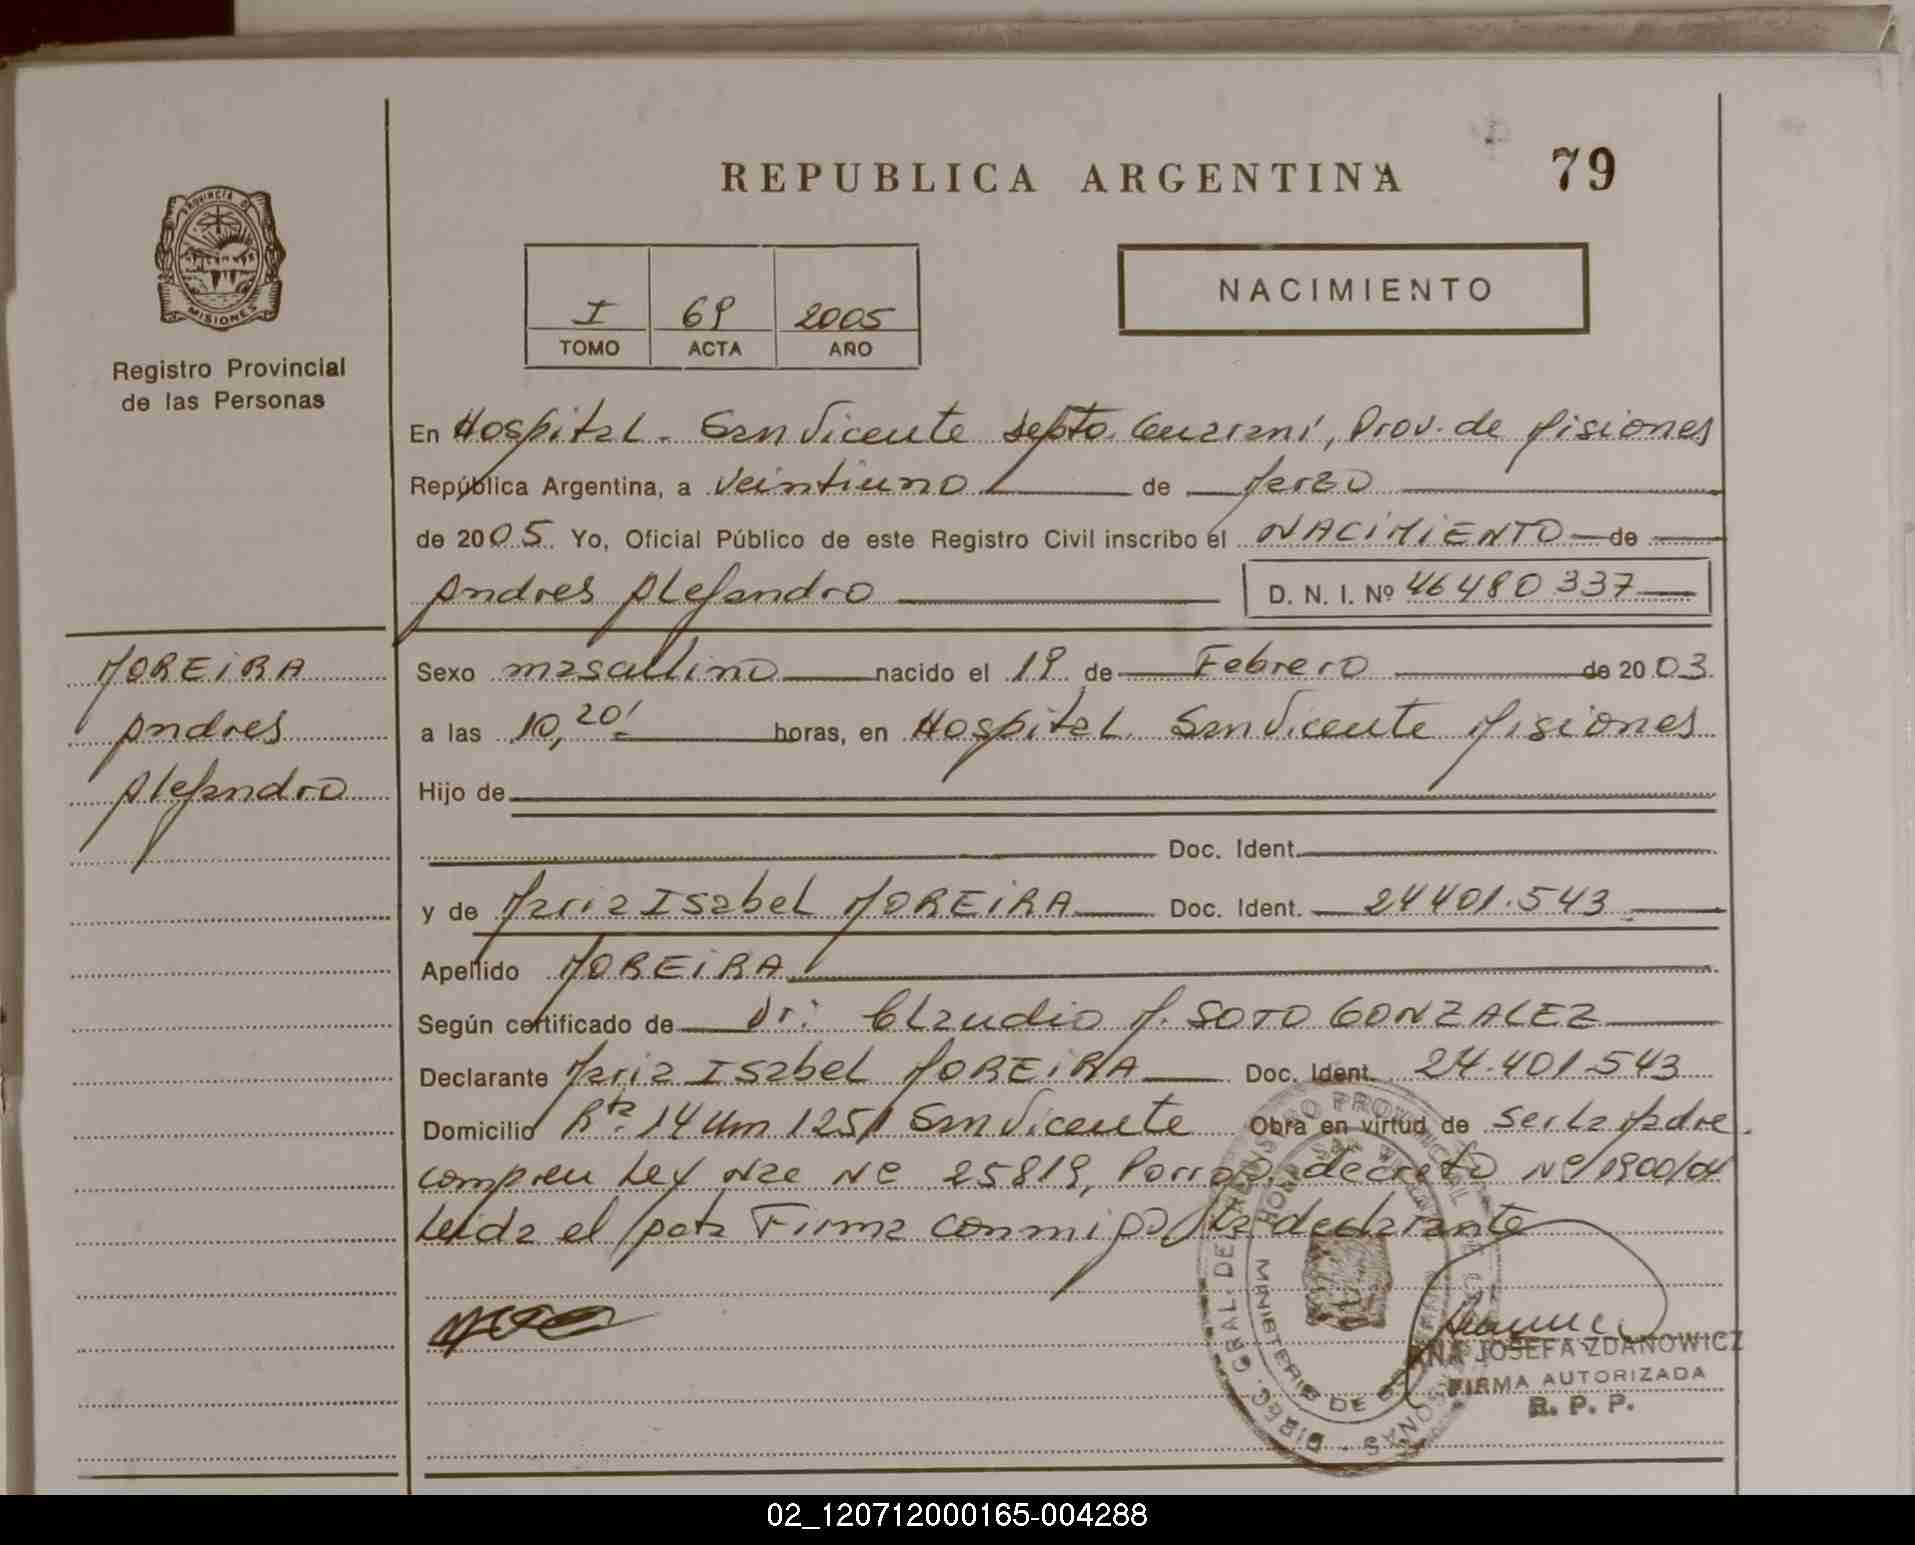 REPUBLICA ARGENTINA
79
PROVINCIA DE
MISIONES
Registro Provincial
de las Personas
I 69 2005
TOMO ACTA AÑO
NACIMIENTO
En Hospital - San Vicente Depto. Guarani, Prov. de Misiones
República Argentina, a veintiuno de Marzo
de 2005. Yo, Oficial Público de este Registro Civil inscribo el NACIMIENTO de
Andres Alejandro D. N. I. Nº 46480337
MOREIRA
Andres
Alejandro
Sexo masculino nacido el 19 de Febrero de 2003
a las 10,20' horas, en Hospital San Vicente Misiones
Hijo de
Doc. Ident.
y de Maria Isabel MOREIRA Doc. Ident. 24401.543
Apellido MOREIRA
Según certificado de Dr. Claudio M. SOTO GONZALEZ
Declarante Maria Isabel MOREIRA Doc. Ident. 24.401.543
Domicilio Rta. 14 Km 1251 San Vicente Obra en virtud de ser la Madre
compren Ley Nac Nº 25819, decreto Nº 1900/04
Leida el Firma conmigo la declarante
ANA JOSEFA ZDANOWICZ
FIRMA AUTORIZADA
R. P. P.
02_120712000165-004288